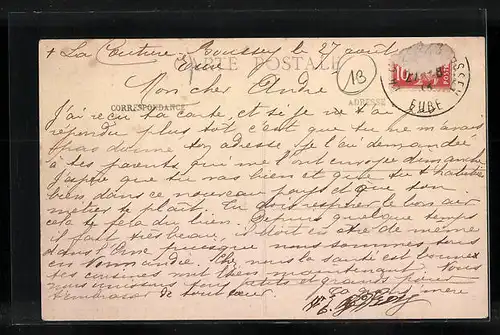 + La Couture-Boussey le 27 août
Eure
CARTE POSTALE
13
Mon cher André
CORRESPONDANCE
ADRESSE
10
POSTES
EURE
J'ai reçu ta carte, et si je ne t'ai
répondu plus tôt c'est que tu ne m'avais
pas donné ton adresse, je l'ai demandée
à tes parents qui me l'ont envoyée dimanche
J'espère que tu vas bien et que tu t'habitues
bien dans ce nouveau pays et que ton
métier te plaît. Tu dois respirer le bon air
cela te fera du bien. Depuis quelque temps
il fait très beau, il doit en être de même
dans l'Orne puisque nous sommes tous
en Normandie. Chez nous la santé est bonne
tes cousines vont bien maintenant. Nous
nous unissons tous petits et grands pour
t'embrasser de tout cœur